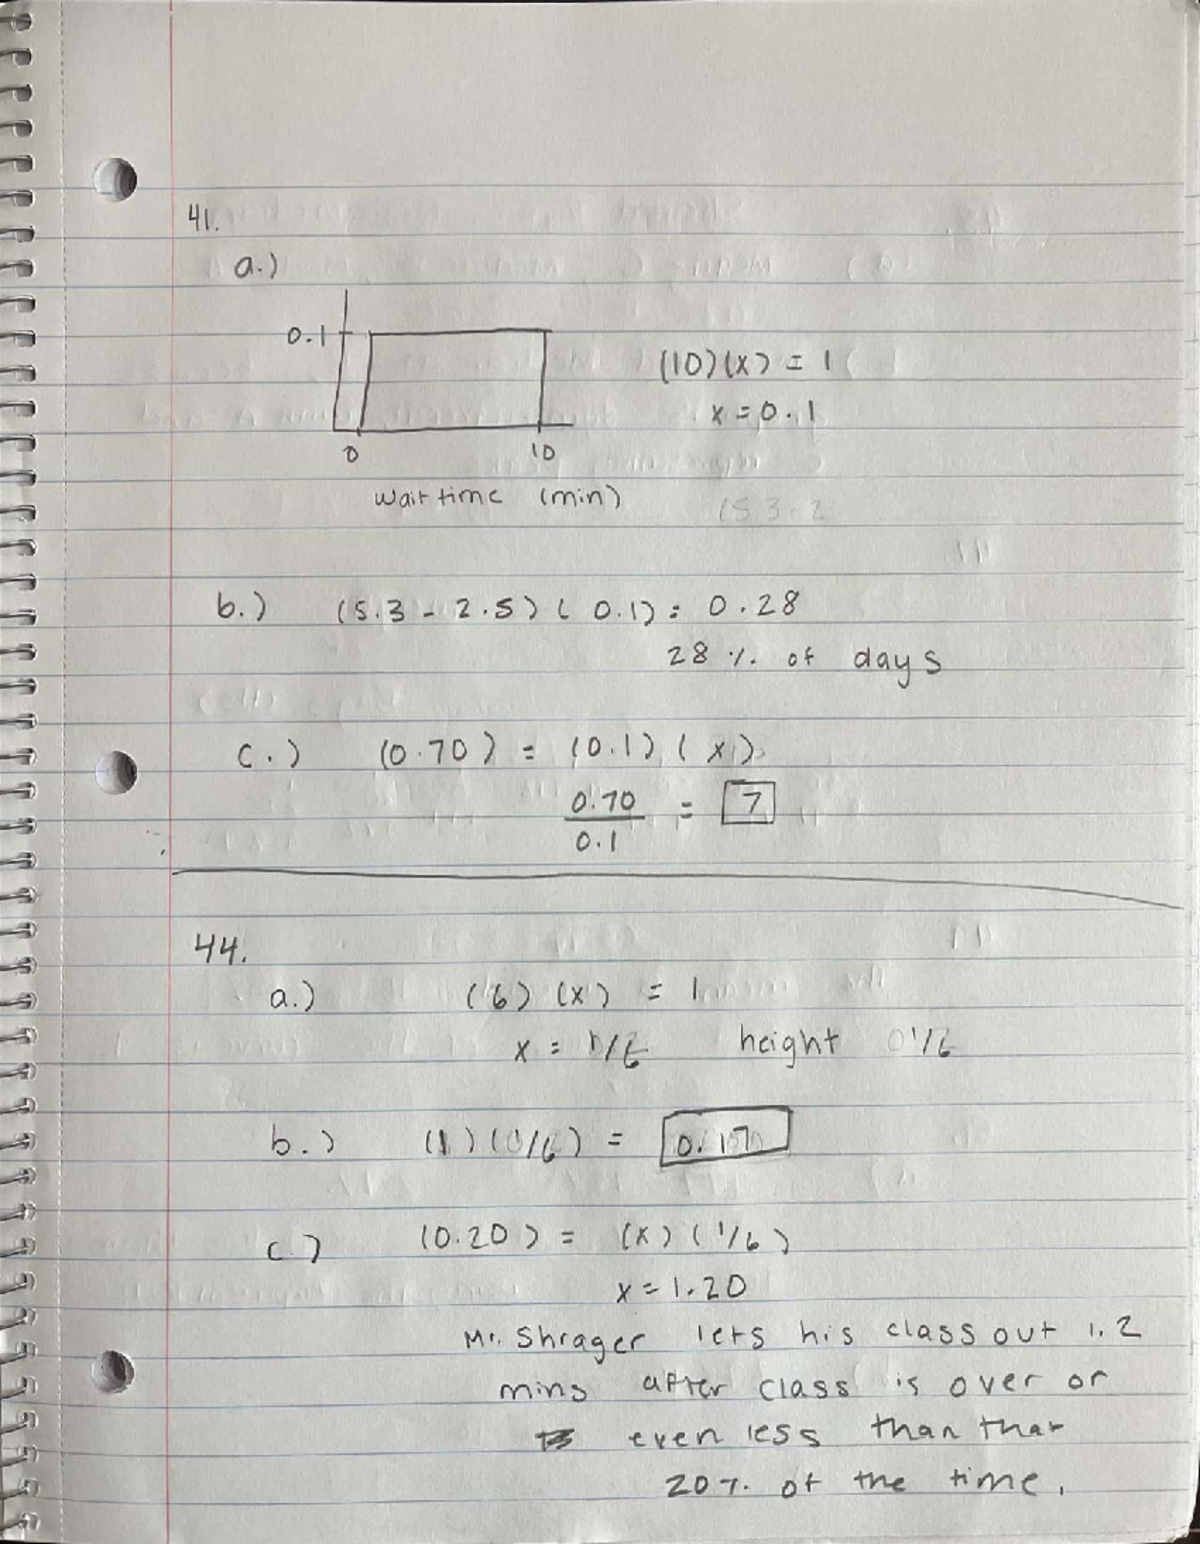 41.
a.)
0.1
(10)(x) = 1
x = 0.1
0 10
Wait time (min)
(5.3-2
b.) (5.3 - 2.5)(0.1) = 0.28
28 % of days
c.) (0.70) = (0.1)(x)
0.70 = 7
0.1
44.
a.) (6)(x) = 1
x = 1/6 height 1/6
b.) (1)(1/6) = 0.17
c.) (0.20) = (x)(1/6)
x = 1.20
Mr. Shrager lets his class out 1.2
mins after class is over or
even less than that
20% of the time.